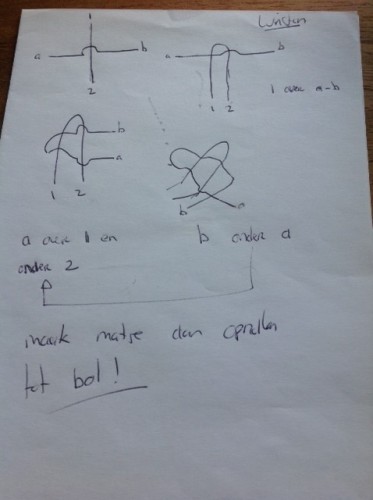 1
a b
2
a b
1 2
1 over a-b
b
a
1 2
b a
a over 1 en
onder 2
b onder a
maak matje dan oprollen
tot bol!